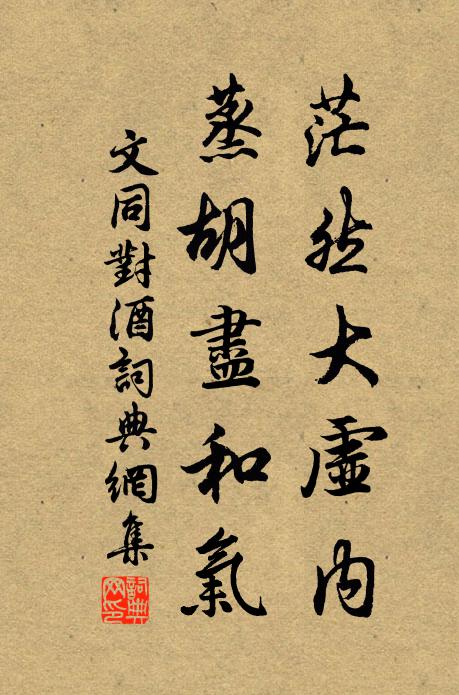 茫然大虛內
蒸胡盡和氣
文同對酒詞典網集
詞典網印